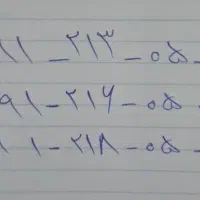 ۱۱ - ۲۱۳ - ۰۵ -
۹۱ - ۲۱۶ - ۰۵ -
۱ ۱ - ۲۱۸ - ۰۵ -